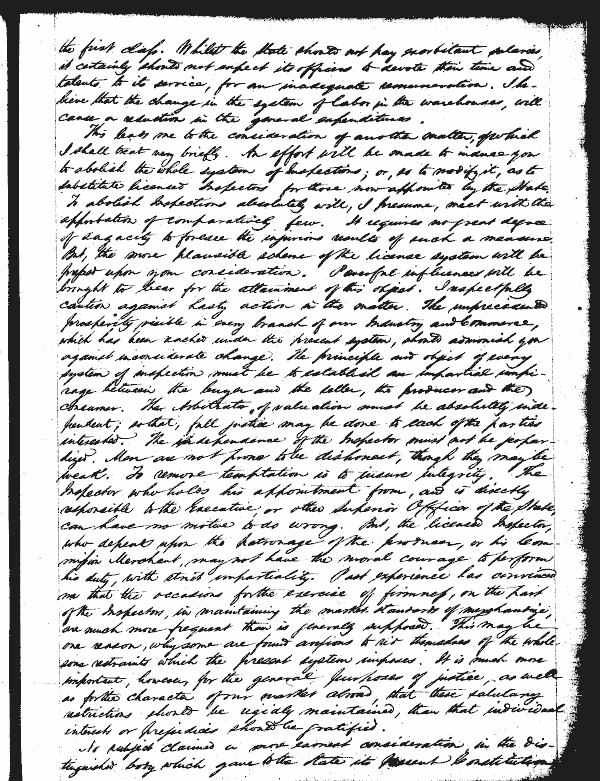 the first class. Whilst the State should not pay exorbitant salaries,
it certainly should not expect its officers to devote their time and
talents to its service, for an inadequate remuneration. I be-
lieve that the change in the system of labor, in the warehouses, will
cause a reduction in the general expenditures.
This leads me to the consideration of another matter, of which
I shall treat very briefly. An effort will be made to induce you
to abolish the whole system of Inspections; or, so to modify it, as to
substitute licensed Inspectors for those now appointed by the State.
To abolish Inspections absolutely will, I presume, meet with the
approbation of comparatively few. It requires no great degree
of sagacity to foresee the injurious results of such a measure.
But, the more plausible scheme of the license system will be
pressed upon your consideration. Powerful influences will be
brought to bear for the attainment of this object. I respectfully
caution against hasty action in the matter. The unprecedented
prosperity visible in every branch of our Industry and Commerce,
which has been reached under the present system, should admonish you
against inconsiderate change. The principle and object of every
system of inspection must be to establish an impartial umpi-
rage between the buyer and the seller, the producer and the
consumer. The Arbitrator of valuation must be absolutely inde-
pendent; so that, full justice may be done to each of the parties
interested. The independence of the Inspector must not be jeopar-
dized. Men are not prone to be dishonest, though they may be
weak. To remove temptation is to insure integrity. The
Inspector who holds his appointment from, and is directly
responsible to the Executive, or other Superior Officer of the State,
can have no motive to do wrong. But, the licensed Inspector,
who depends upon the patronage of the producer, or his Com-
mission Merchant, may not have the moral courage to perform
his duty, with strict impartiality. Past experience has convinced
me that the occasions for the exercise of firmness, on the part
of the Inspectors, in maintaining the market standards of merchandize,
are much more frequent than is generally supposed. This may be
one reason, why some are found anxious to rid themselves of the whole
some restraints which the present system imposes. It is much more
important, however, for the general purposes of justice, as well
as for the character of our market abroad, that these salutary
restrictions should be rigidly maintained, than that individual
interests or prejudices should be gratified.
No subject claimed a more earnest consideration, in the dis-
tinguished body which gave to the State its present Constitution